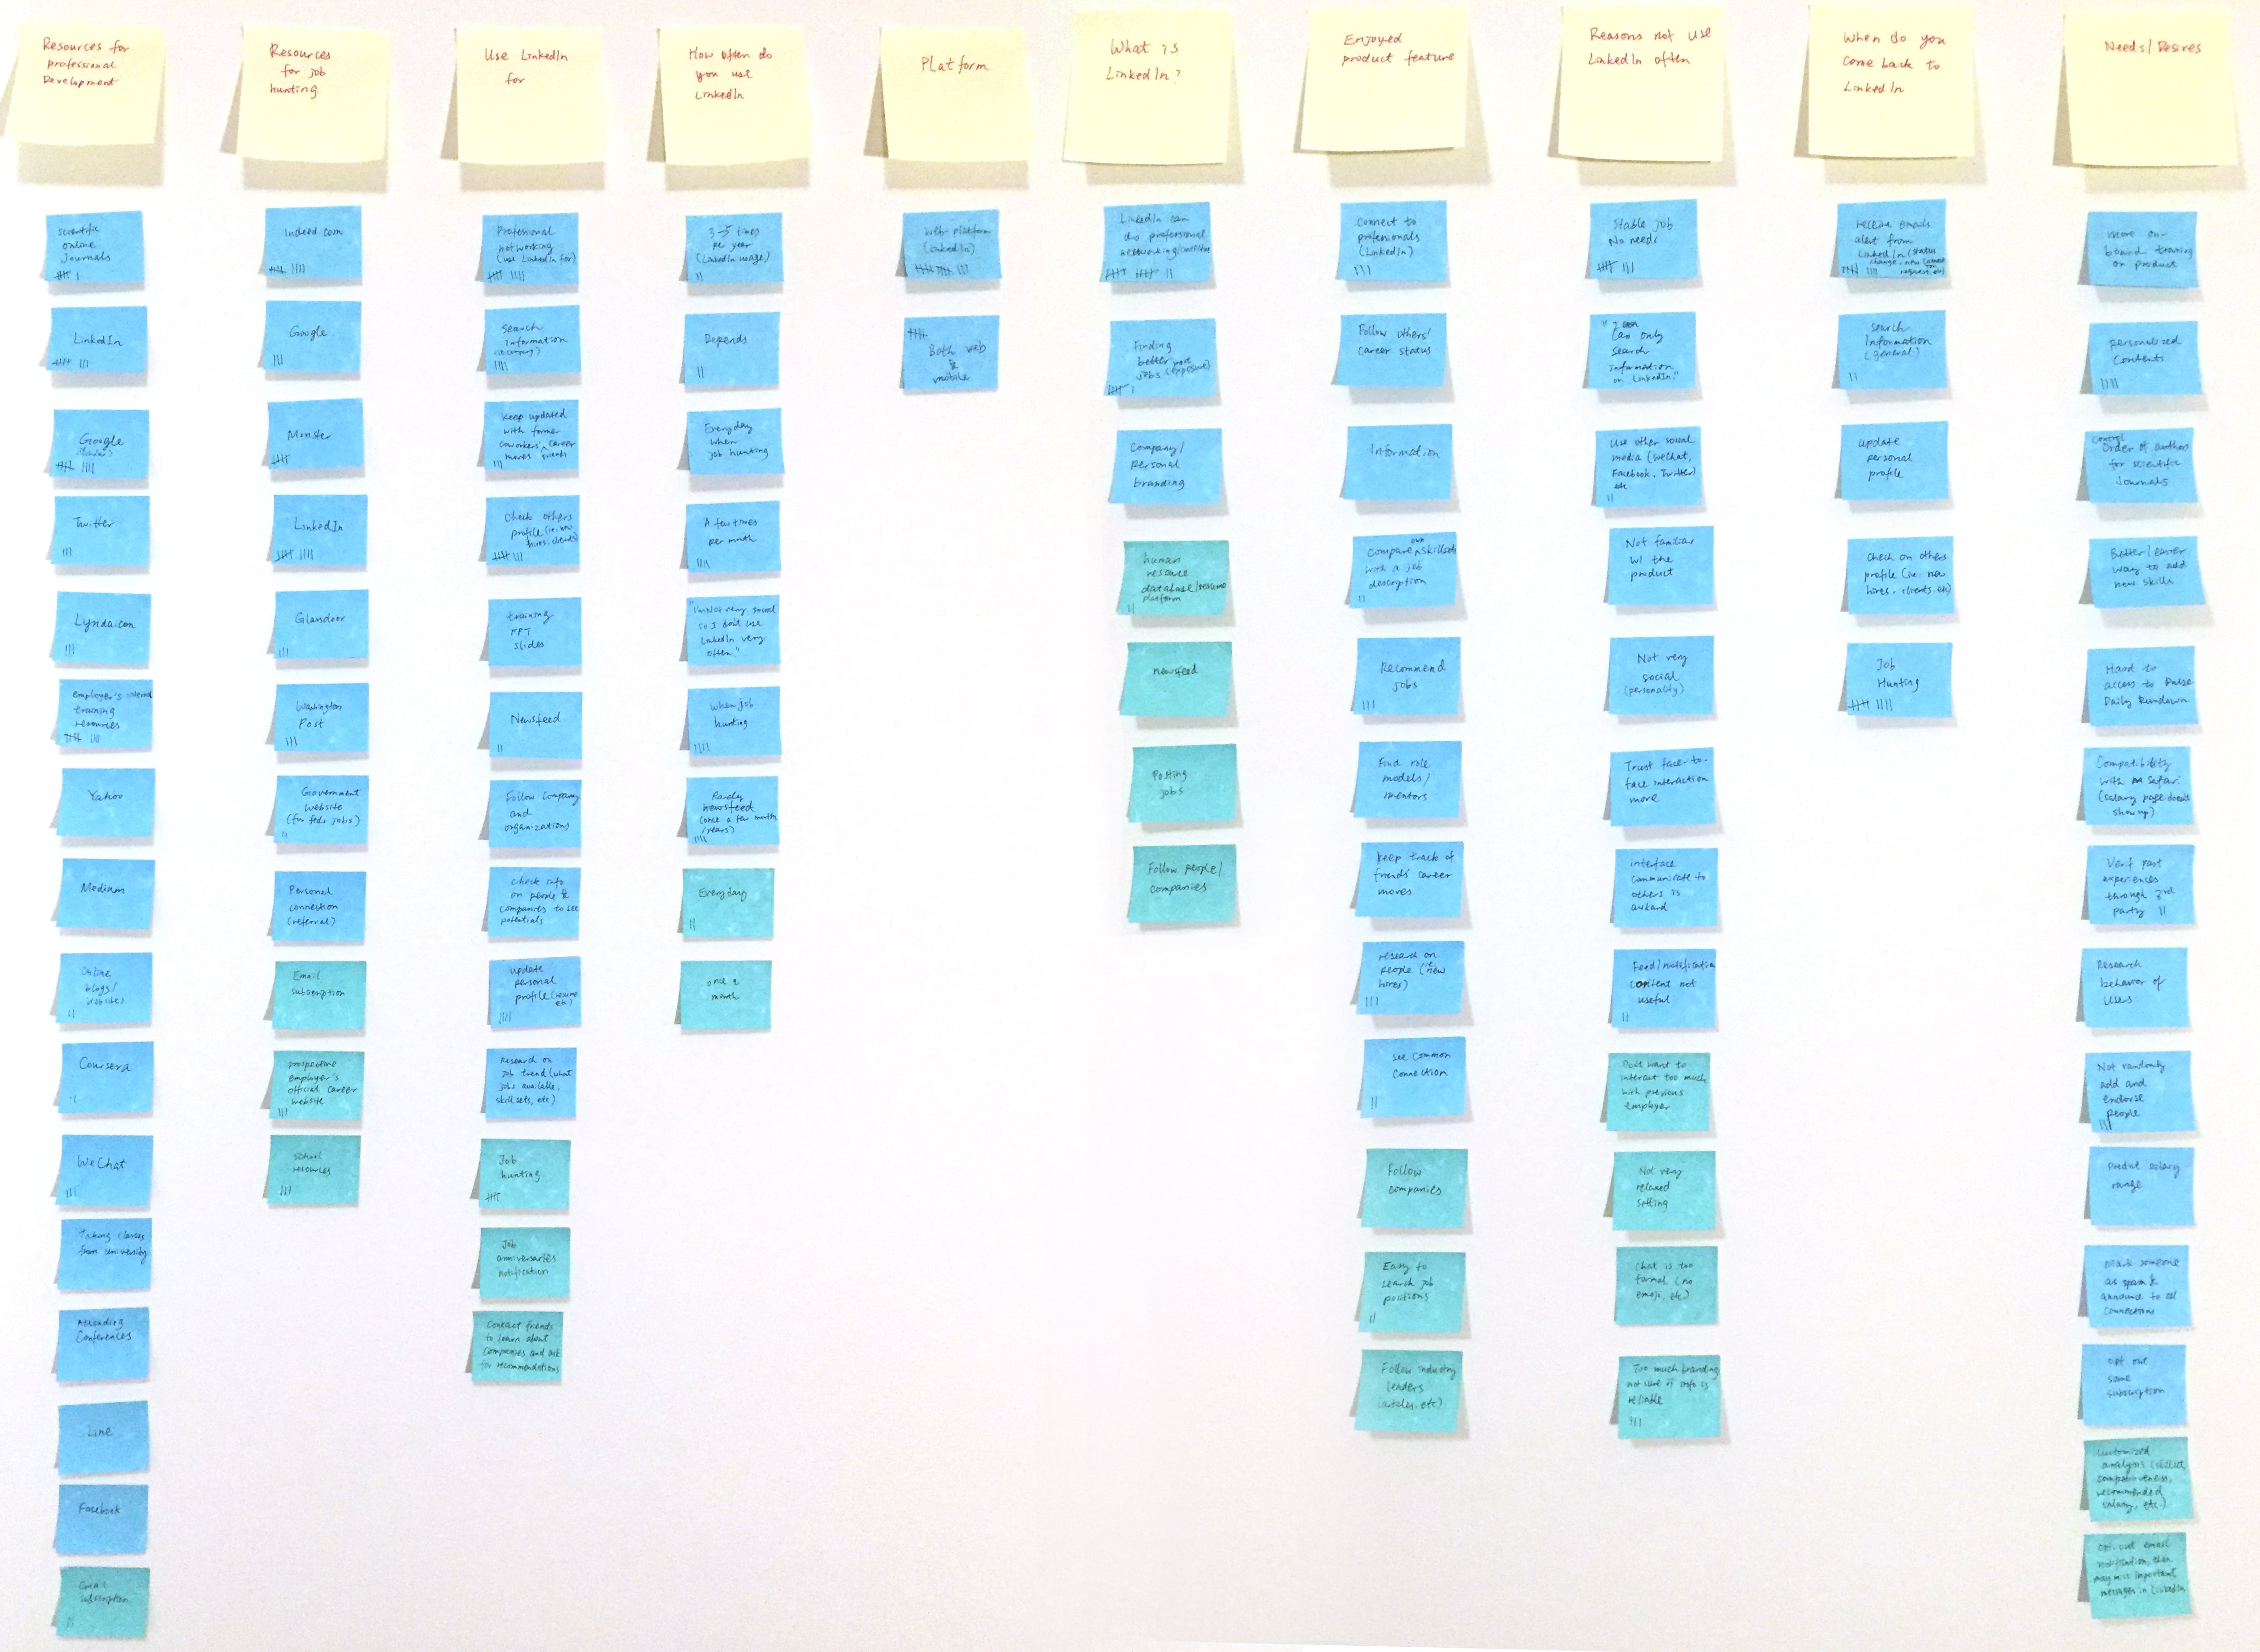 Resources for
professional
Development
scientific
online
Journals
LinkedIn
Google
(scholar)
Twitter
Lynda.com
employer's
training
resources
Yahoo
Medium
Online
blogs/
websites
Coursera
WeChat
Taking classes
from university
Attending
Conferences
Line
Facebook
Email
subscription
Resources
for job
hunting
Indeed com
Google
Monster
LinkedIn
Glassdoor
Washington
Post
Government
website
(for feds jobs)
Personal
connection
(referral)
Email
subscription
prospective
employer's
official career
website
school
resources
Use LinkedIn
for
Professional
networking
(use LinkedIn for)
search
Information
(company)
keep updated
with former
coworkers' career
moves events
Check others
profile (ie. new
hires, clients)
training
PPT
slides
Newsfeed
Follow company
and
organizations
check info
on people &
companies to see
potentials
update
personal
profile (resume
etc)
Research on
job trend (what
jobs available,
skillsets, etc)
Job
hunting
Job
anniversaries
notification
Contact friends
to learn about
Companies and ask
for recommendations
How often do
you use
LinkedIn
3-5 times
per year
(LinkedIn usage)
Depends
Everyday
when
job hunting
A few times
per month
"I'm Not very social
so I don't use
LinkedIn very
often."
when job
hunting
Rarely
newsfeed
(once a few month
/years)
Everyday
once a
month
Platform
web platform
(LinkedIn)
Both web
&
mobile
What is
LinkedIn?
LinkedIn can
do professional
networking
Finding
better
jobs (exposure)
Company/
Personal
branding
human
resource
database/resume
platform
newsfeed
Posting
jobs
Follow people/
companies
Enjoyed
product feature
Connect to
professionals
(LinkedIn)
Follow others'
career status
Information
Compare own skillsets
with a job
description
Recommend
jobs
Find role
models/
mentors
keep track of
friends' career
moves
research on
people (ie new
hires)
see common
connection
Follow
companies
Easy to
search job
positions
Follow industry
leaders
(articles, etc)
Reasons not use
LinkedIn often
Stable job
No needs
"I
Can only
search
information
on LinkedIn."
Use other social
media (WeChat,
Facebook, Twitter)
etc.
Not familiar
w/ the
product
Not very
social
(personality)
Trust face-to-
face interaction
more
interface
communicate to
others is
awkard
Feed/notification
content not
useful
Don't want to
interact too much
with previous
employer
Not very
relaxed
setting
Chat is too
formal (no
emoji, etc)
Too much branding
not sure if info is
reliable
When do you
come back to
LinkedIn
receive emails
alert from
LinkedIn (status
change, new connect
request, etc)
search
Information
(general)
update
personal
profile
Check on others
profile (ie. new
hires, clients, etc)
Job
Hunting
Needs/Desires
more on-
board training
on product
personalized
Contents
Control
Order of authors
for scientific
Journals
Better/easier
way to add
new skills
Hard to
access to Pulse
Daily Rundown
Compatibility
with Safari
(salary page doesn't
show up)
Verif past
experiences
through 3rd
party
Research
behavior of
Users
Not randomly
add and
endorse
people
Predict salary
range
Mark someone
as spam &
announce to all
connections
opt out
some
subscription
Customized
analysis (skillset,
competitiveness,
recommended
salary, etc)
Opt-out email
notification, then
may miss important
messages in LinkedIn